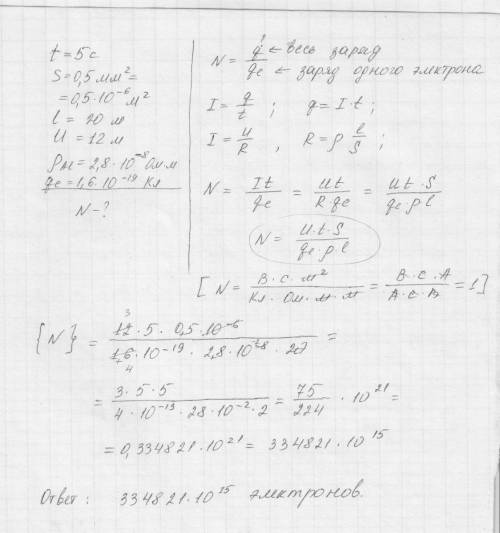 t = 5 с
S = 0,5 мм² =
= 0,5·10⁻⁶ м²
l = 20 м
U = 12 м
ρ_Al = 2,8·10⁻⁸ Ом·м
qe = 1,6·10⁻¹⁹ Кл
N – ?
N = q/qe ← весь заряд ← заряд одного электрона
I = q/t ; q = I·t ;
I = U/R , R = ρ l/S ;
N = It/qe = Ut/(R·qe) = (U·t·S)/(qe·ρ·l)
N = (U·t·S)/(qe·ρ·l)
[ N = (В·с·м²)/(Кл·Ом·м·м) = (В·с·А)/(А·с·В) = 1 ]
{N} = (12·5·0,5·10⁻⁶)/(1,6·10⁻¹⁹·2,8·10⁻⁸·20) =
= (3·5·5)/(4·10⁻¹⁹·28·10⁻²·2) = 75/224 · 10²¹ =
= 0,334821·10²¹ = 334821·10¹⁵
Ответ : 334821·10¹⁵ электронов.